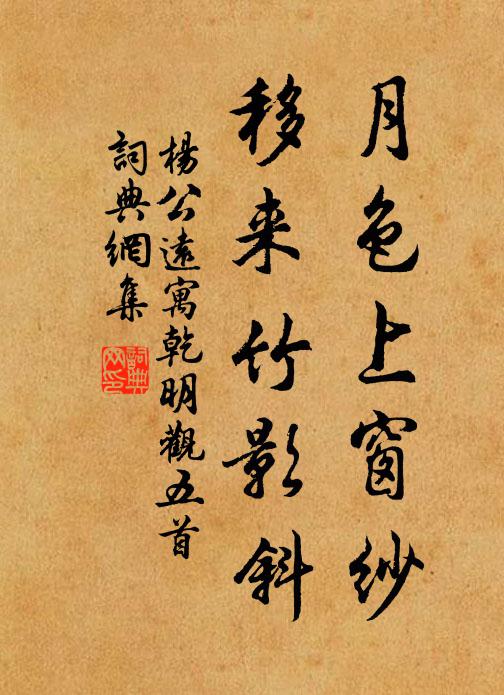 月色上窗紗
移来竹影斜
楊公遠寓乾明觀五首
詞典網集
詞典
网印